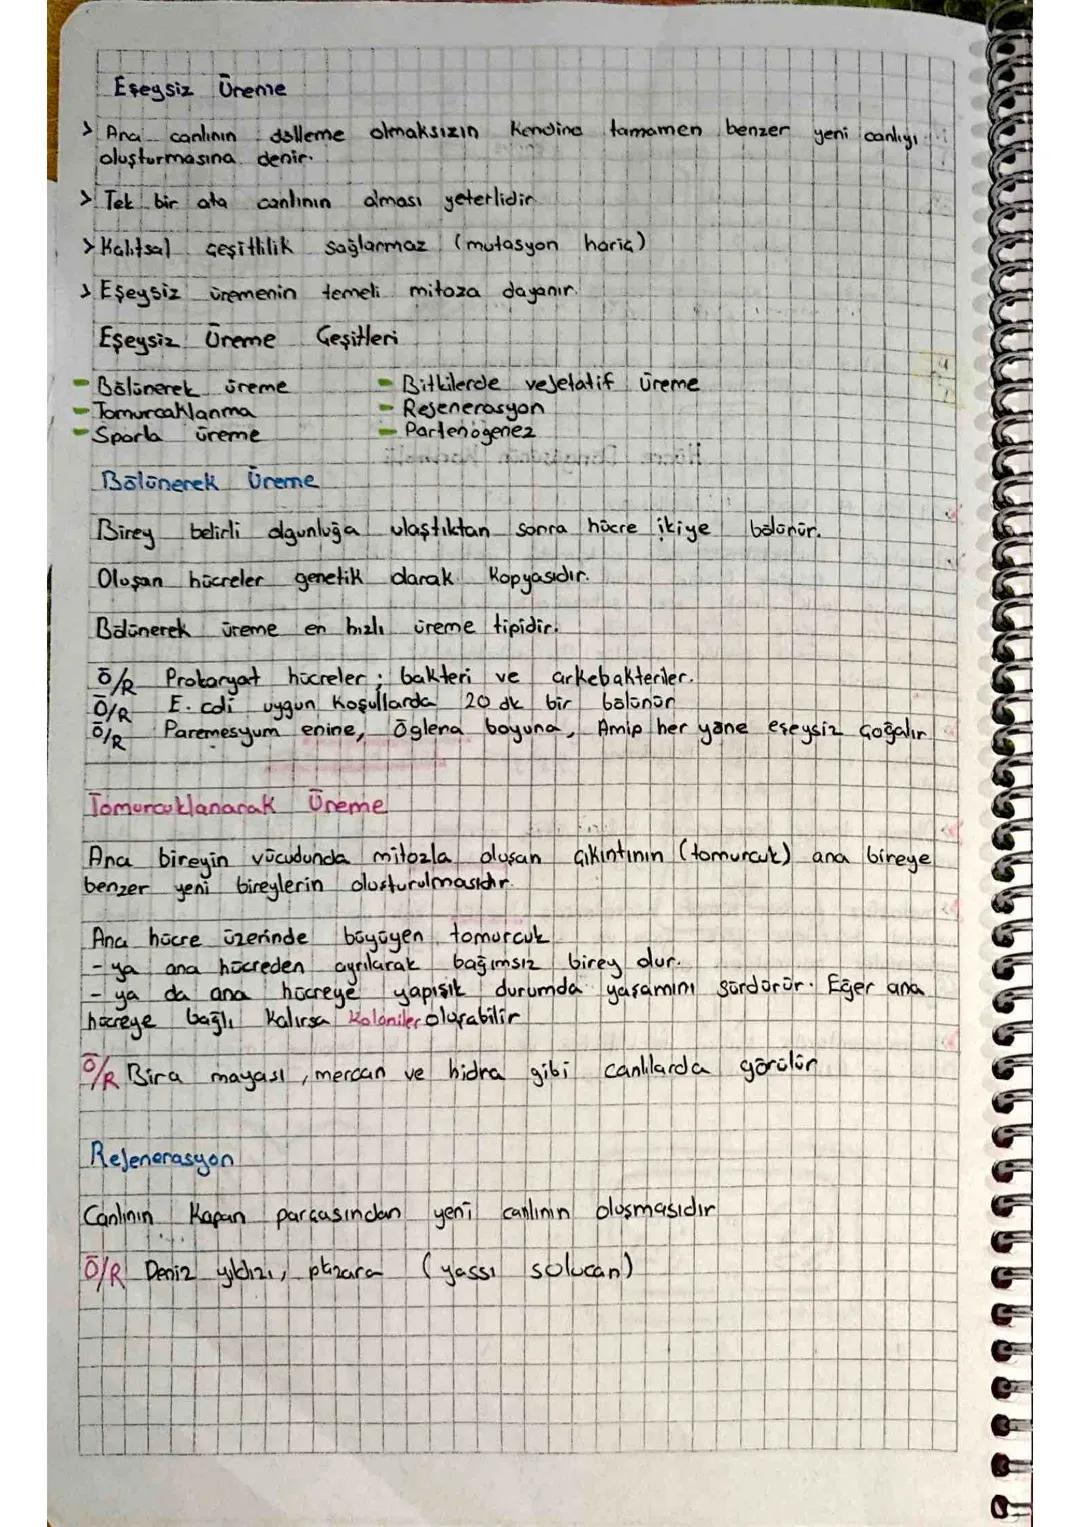 Eşeysiz Üreme
> Ana canlının dölleme olmaksızın Kendine tamamen benzer yeni canlıyı
oluşturmasına denir.
> Tek bir ata canlının olması yeterlidir
> Kalıtsal çeşitlilik sağlanmaz (mutasyon hariç)
> Eşeysiz üremenin temeli mitoza dayanır.
Eşeysiz Üreme Çeşitleri
- Bölünerek üreme
- Tomurcaklanma
- Sporla üreme
- Bitkilerde vejetatif üreme
- Rejenerasyon
- Partenogenez
Bölünerek Üreme
Birey belirli olgunluğa ulaştıktan sonra hücre ikiye bölünür.
Oluşan hücreler genetik olarak Kopyasıdır.
Bölünerek üreme en hızlı üreme tipidir.
Ö/R Prokaryot hücreler ; bakteri ve arkebakteriler.
Ö/R E. coli uygun Koşullarda 20 dk bir bölünür
Ö/R Paremesyum enine, Öglena boyuna, Amip her yöne eşeysiz çoğalır
Tomurcuklanarak Üreme
Ana bireyin vücudunda mitozla oluşan çıkıntının (tomurcuk) ana bireye
benzer yeni bireylerin oluşturulmasıdır.
Ana hücre üzerinde büyüyen tomurcuk
- ya ana hücreden ayrılarak bağımsız birey olur.
- ya da ana hücreye yapışık durumda yaşamını sürdürür. Eğer ana
hücreye bağlı Kalırsa Koloniler oluşabilir
Ö/R Bira mayası , mercan ve hidra gibi canlılarda görülür
Rejenerasyon
Canlının Kopan parçasından yeni canlının oluşmasıdır
Ö/R Deniz yıldızı, (yassı solucan)